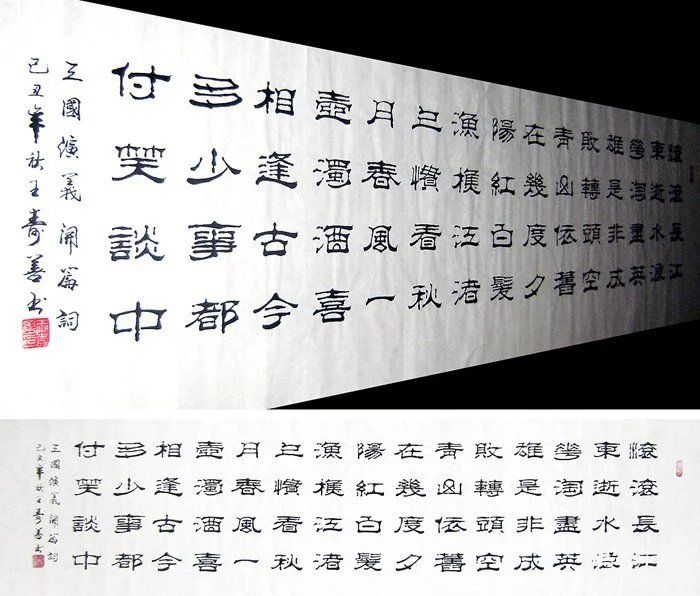 滾滾長江
東逝水浪
華淘盡英
雄是非成
敗轉頭空
青山依舊
在幾度夕
陽紅白髮
漁樵江渚
上慣看秋
月春風一
壺濁酒喜
相逢古今
多少事都
付笑談中
三國演義開篇詞
己丑年秋王壽善书
滾滾長江
東逝水浪
華淘盡英
雄是非成
敗轉頭空
青山依舊
在幾度夕
陽紅白髮
漁樵江渚
上慣看秋
月春風一
壺濁酒喜
相逢古今
多少事都
付笑談中
三國演義開篇詞
己丑年秋王壽善书